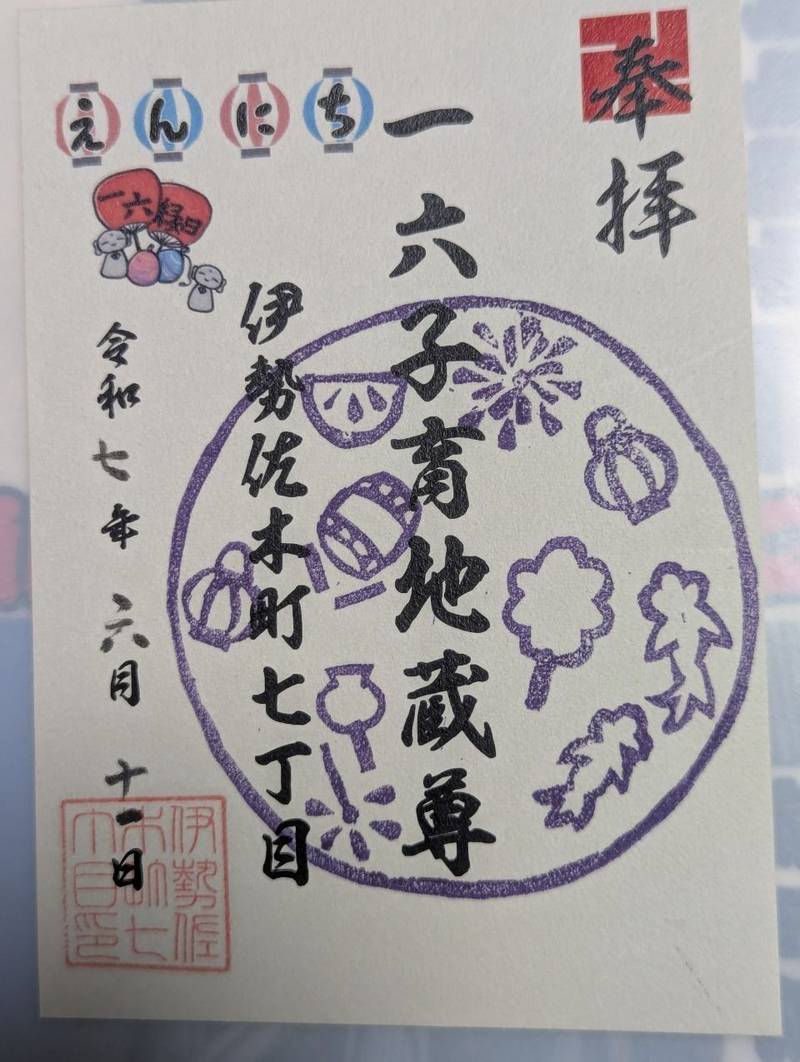 奉拝
一六子育地蔵尊
伊勢佐木町七丁目
えんにち
一六縁日
令和七年 六月 十一日
伊勢佐
木町七
丁目印